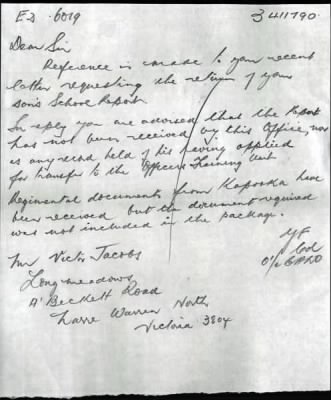 E2 6019
3411790
Dear Sir
Reference is made to your recent
letter requesting the return of your
son's School Report
In reply you are advised that the Report
has not been received by this Office, nor
is any record held of his having applied
for transfer to the Officers Training Unit
Regimental documents from Kapooka have
been received but the document required
was not included in the package.
YF
Mr Victor Jacobs
Longmeadows
A'Beckett Road
Narre Warren North
Victoria 3804